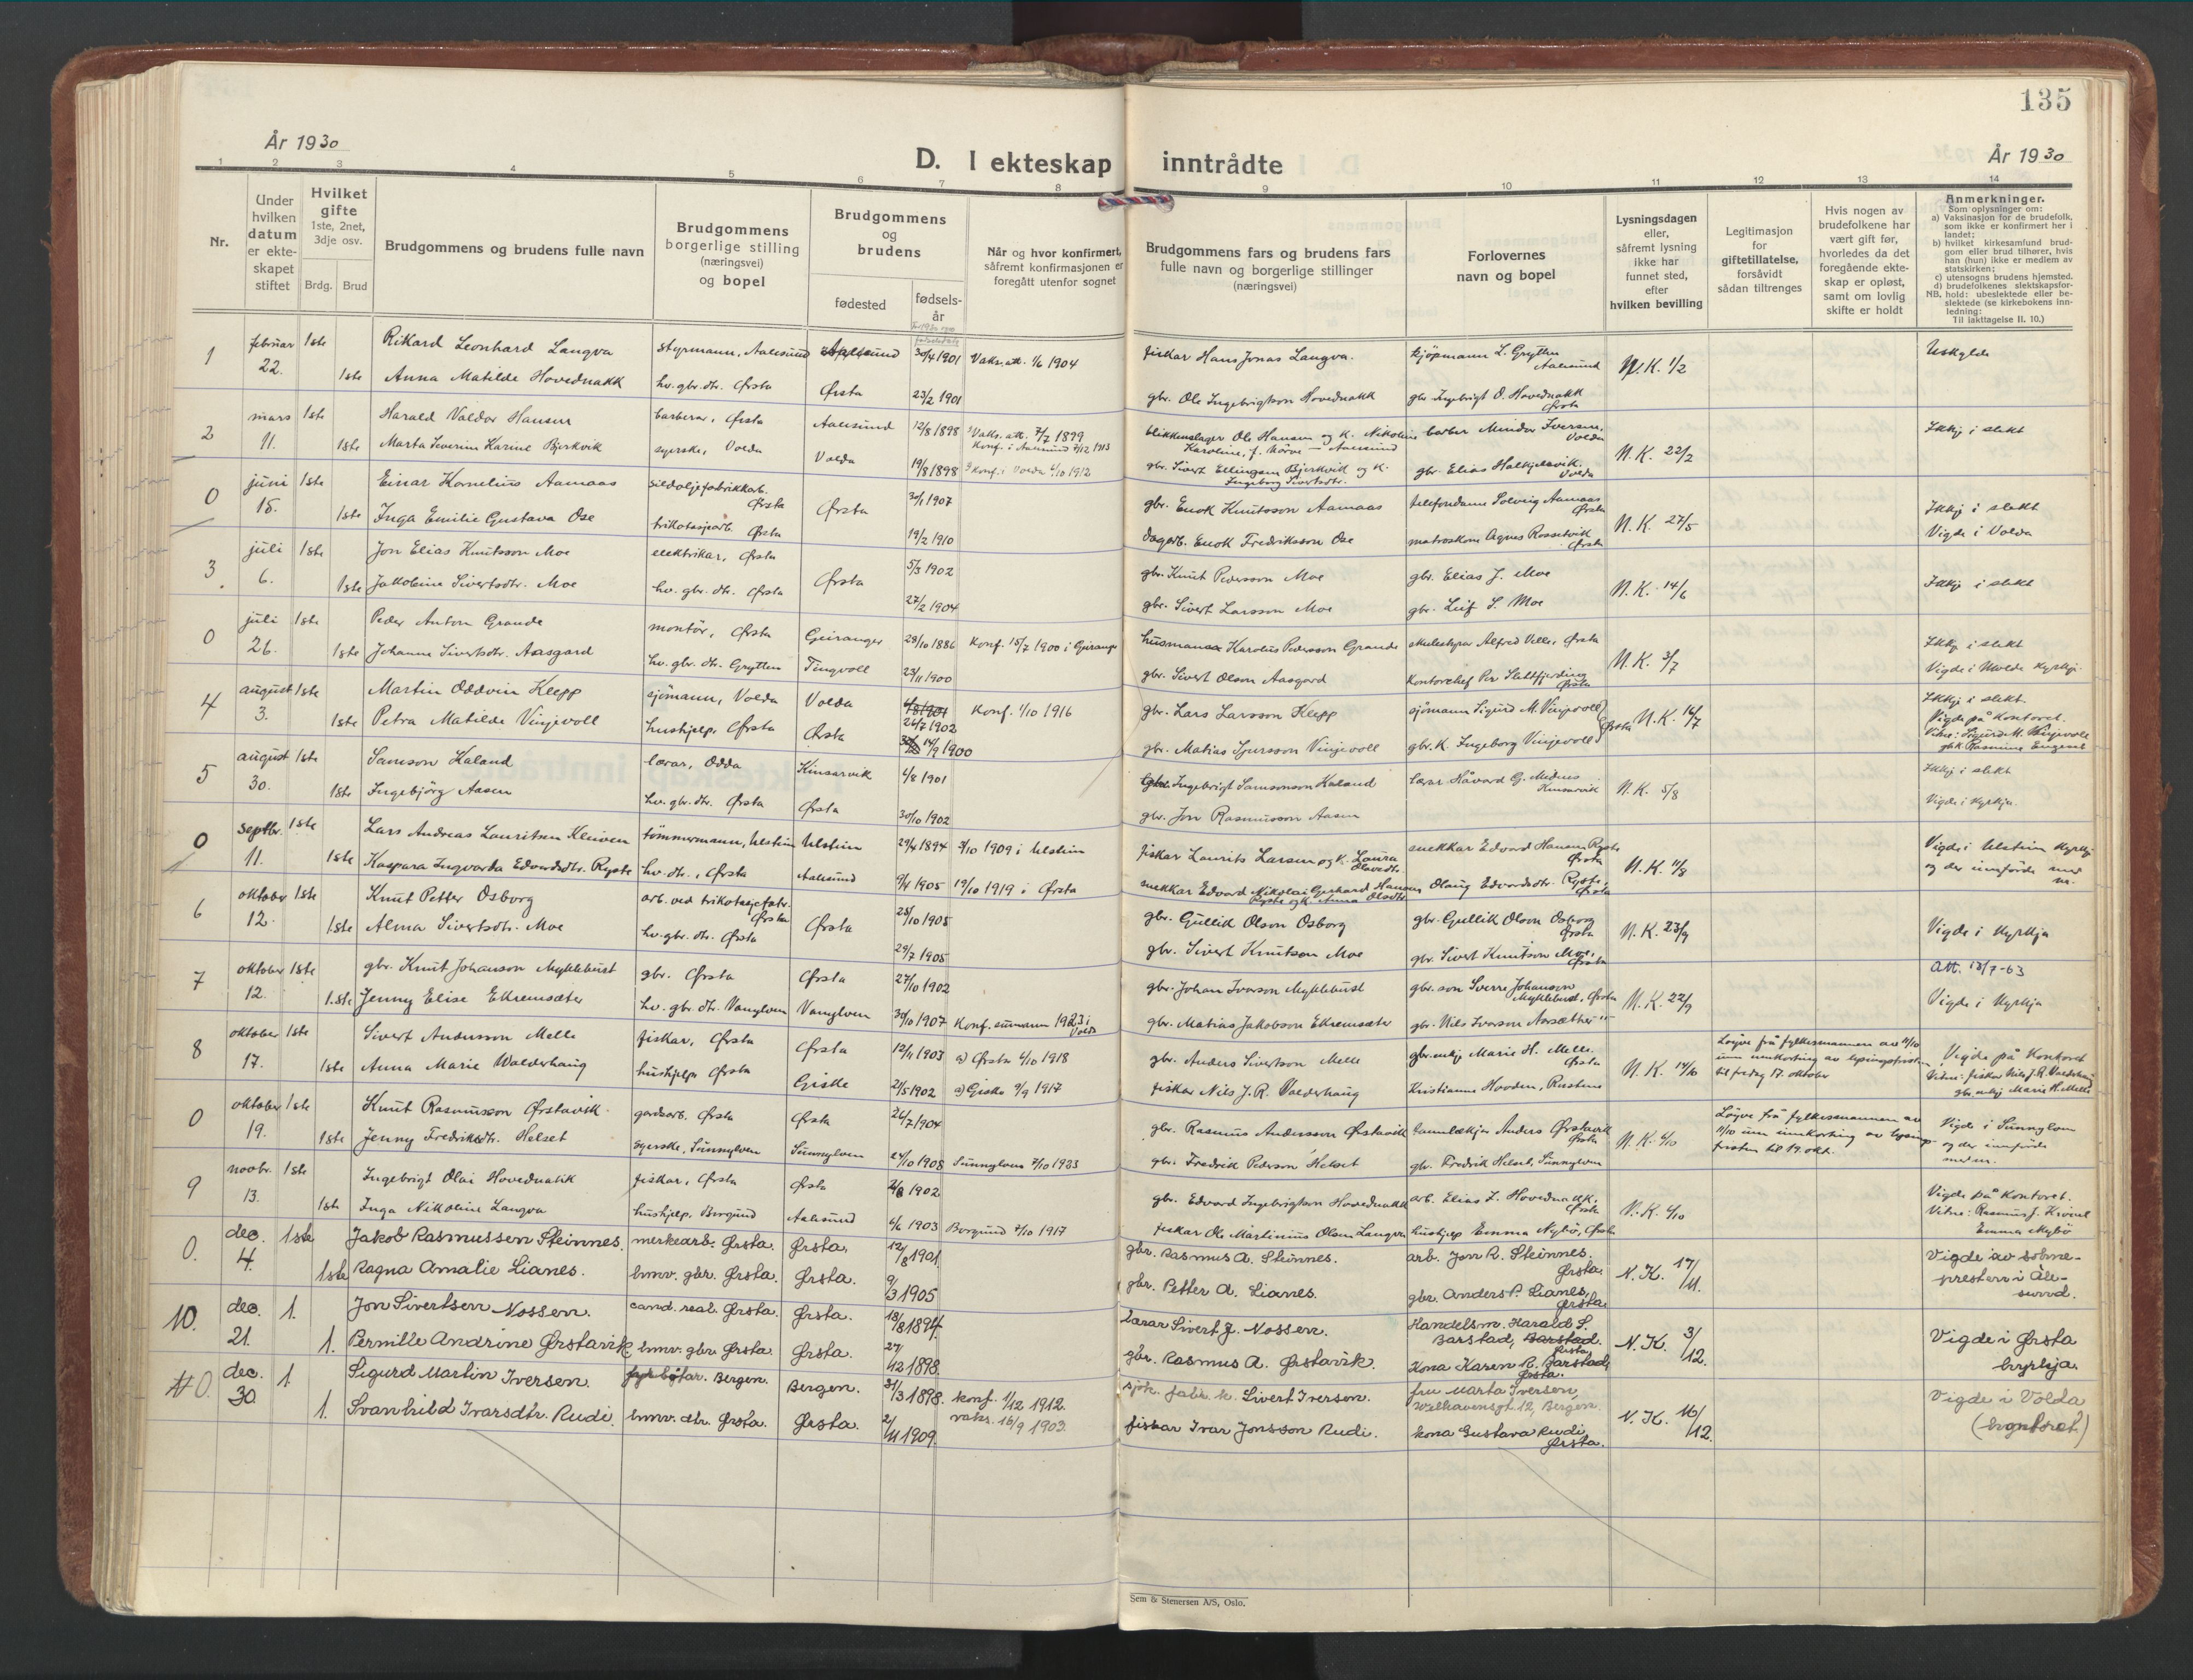 135
År 1930
D. I ekteskap inntrådte
År 1930
1 2 3 4 5 6 7 8 9 10 11 12 13 14
Nr.
Under hvilken datum er ekte-skapet stiftet
Hvilket gifte 1ste, 2net, 3dje osv.
Brdg. Brud
Brudgommens og brudens fulle navn
Brudgommens borgerlige stilling (næringsvei) og bopel
Brudgommens og brudens
fødested
fødsels-år
Når og hvor konfirmert, såfremt konfirmasjonen er foregått utenfor sognet
Brudgommens fars og brudens fars fulle navn og borgerlige stillinger (næringsvei)
Forlovernes navn og bopel
Lysningsdagen eller, såfremt lysning ikke har funnet sted, efter hvilken bevilling
Legitimasjon for giftetillatelse, forsåvidt sådan tiltrenges
Hvis nogen av brudefolkene har vært gift før, hvorledes da det foregående ekte-skap er opløst, samt om lovlig skifte er holdt
Anmerkninger.
Som oplysninger om:
a) Vaksinasjon for de brudefolk, som ikke er konfirmert her i landet;
b) hvilket kirkesamfund brud-gom eller brud tilhører, hvis han (hun) ikke er medlem av statskirken;
c) utensogns brudens hjemsted.
d) brudefolkenes slektskapsfor-hold: ubeslektede eller be-slektede (se kirkebokens inn-ledning:
NB.
Til iakttagelse II. 10.)
1 februar 22. 1ste Rikard Leonhard Langva styrmann, Aalesund Aalesund 30/4 1901 Vaks.att. 1/6 1904 fiskar Hans Jonas Langva. kjøpmann L. Grytten Aalesund N.K. 1/2 Uskylde
1ste Anna Matilde Hovednakk hv. gbr. dtr. Ørsta Ørsta 23/2 1901 gbr. Ole Ingebrigtson Hovednakk gbr Ingebrigt O. Hovednakk Ørsta
2 mars 11. 1ste Harald Valdor Hansen barberar, Ørsta Aalesund 12/8 1898 Vaks. att. 7/7 1899 Konf. i Aalesund 7/12 1913 blikkenslager Ole Hansen og K. Nikoline Karoline, f. Nørve - Aalesund barber Mindor Iversen, Volda N.K. 22/2 Ikkj i slekt
1ste Marta Severine Karine Bjerkvik syerske, Volda Volda 19/8 1898 Konf. i Volda 6/10 1912 gbr. Sivert Ellingsen Bjerkvik og K. Ingeborg Sivertsdtr. gbr. Elias Halkjelsvik. Volda
0 juni 15. 1ste Einar Kornelius Aamaas sildoljefabrikkarb. Ørsta Ørsta 30/1 1907 gbr. Enok Knutsson Aamaas telefondame Solveig Aamaas Ørsta N.K. 27/5 Ikkj i slekt
1ste Inga Emilie Gustava Ose trikotasjearb. Ørsta 19/2 1910 dagarb. Enok Fredriksson Ose matroskone Agnes Rossetvik Ørsta Vigde i Volda
3 juli 6. 1ste Jon Elias Knutsson Moe elektrikar, Ørsta Ørsta 5/3 1902 gbr. Knut Pederson Moe gbr. Elias J. Moe N.K. 14/6 Ikkj i slekt
1ste Jakobine Sivertsdtr. Moe hv. gbr. dtr. Ørsta 27/2 1904 gbr. Sivert Larsson Moe gbr. Leif S. Moe
0 juli 26. 1ste Peder Anton Grande montör, Ørsta Geiranger 28/10 1886 Konf. 15/7 1900 i Geiranger husmann Karolus Pedersson Grande skulestyrar Alfred Velle, Ørsta N.K. 3/7 Ikkj i slekt
1ste Johanne Sivertsdtr. Aasgard hv. gbr. dtr. Grytten Tingvoll 23/11 1900 gbr. Sivert Olson Aasgard Kontorchef Per Slettfjerding Ørsta Vigde i Molde kyrkje.
4 august 3. 1ste Martin Oddvin Klepp sjömann, Volda Volda 26/7 1902 Konf. 1/10 1916 gbr. Lars Larsson Klepp sjömann Sigurd M. Vinjevoll N.K. 16/7 Ikkj i slekt.
1ste Petra Matilde Vinjevoll hushjelp, Ørsta Ørsta 14/9 1900 gbr. Matias Sjursson Vinjevoll gbr.K. Ingeborg Vinjevoll Ørsta Vigde på Kontoret. Vitne: Sigurd M. Vinjevoll gbk. Rasmine Engeset
5 august 30. 1ste Samson Haland lærar, Odda Kinsarvik 6/8 1901 gbr. Ingebrigt Samsonson Haland lærar Håvard G. Midnes Kinsarvik N.K. 5/8 Ikkj i slekt
1ste Ingebjörg Aasen hv. gbr. dtr. Ørsta Ørsta 30/10 1902 gbr. Jon Rasmusson Aasen Vigde i kyrkja.
0 septbr. 11. 1ste Lars Andreas Lauritsen Kleiven tömmermann, Ulstein Ulstein 29/4 1894 3/10 1909 i Ulstein fiskar Laurits Larsen og K. Laura Olavsdtr. snekkar Edvard Hansen Ryste Ørsta N.K. 11/8 Vigde i Ulstein kyrkje og der innførde med nr.
1ste Kaspara Ingvarda Edvardsdtr. Ryste hv. dtr., Ørsta Aalesund 9/4 1905 19/10 1919 i Ørsta snekkar Edvard Nikolai Gerhard Hansen Ryste og K. Anna Olsdtr. Olaug Edvardsdtr. Ryste, Ørsta
6 oktober 12. 1ste Knut Petter Osborg arb. ved trikotasjefabr. Ørsta Ørsta 25/10 1905 gbr. Gullik Olson Osborg gbr. Gullik Olson Osborg Ørsta N.K. 23/9 Vigde i kyrkja
1ste Alma Sivertsdtr. Moe hv. gbr. dtr. Ørsta 29/7 1905 gbr. Sivert Knutson Moe gbr. Sivert Knutson Moe, Ørsta
7 oktober 12. 1ste gbr. Knut Johanson Myklebust gbr. Ørsta Ørsta 27/10 1902 gbr. Johan Ivarson Myklebust gbr. son Sverre Johanson Myklebust, Ørsta N.K. 22/9 Att. 18/7-63
1ste Jenny Elise Ekremsæter hv. gbr. dtr. Vanylven Vanylven 30/10 1907 Konf. sumaren 1923 i Volda gbr. Matias Jakobson Ekremsæter gbr. Nils Ivarson Aarsæther Vigde i kyrkja
8 oktober 17. 1ste Sivert Andersson Melle fiskar, Ørsta Ørsta 12/11 1903 a) Ørsta 6/10 1918 gbr. Anders Sivertson Melle gbr. enkj Marie H. Melle. Ørsta N.K. 14/10 Løyve frå fylkesmannen av 11/10 um innkorting av lysingsfristen til fredag 17. oktober Vigde på Kontoret
1ste Anna Marie Valderhaug hushjelp Ørsta Giske 21/5 1902 a) Giske 9/9 1917 fiskar Nils J.R. Valderhaug Kristianne Hovden, Rusten Vitne: fiskar Nils J.R. Valderhaug gbr. enkj Marie H. Melle
0 oktober 19. 1ste Knut Rasmusson Ørstavik gardsarb. Ørsta Ørsta 26/7 1904 gbr. Rasmus Andersson Ørstavik tannlækjar Anders Ørstavik Ørsta N.K. 6/10 Løyve frå fylkesmannen av 11/10 um innkorting av lysings-fristen til 19. okt. Vigde i Sunnylven og der innførde med nr.
1ste Jenny Fredriksdtr. Helset syerske, Sunnylven Sunnylven 24/10 1908 Sunnylven 7/10 1923 gbr. Fredrik Pederson Helset gbr. Fredrik Helset, Sunnylven
9 novbr. 13. 1ste Ingebrigt Olai Hovednakk fiskar, Ørsta Ørsta 2/8 1902 gbr. Edvard Ingebrigtson Hovednakk arb. Elias L. Hovednakk. Ørsta N.K. 6/10 Vigde på Kontoret.
1ste Inga Nikoline Langva hushjelp, Borgund Aalesund 6/6 1903 Borgund 7/10 1917 fiskar Ole Martinius Olson Langva hushjelp Emma Nybö, Ørsta Vitne: Rasmus J. Krøvel Emma Nybö
0. dec. 4. 1ste Jakob Rasmussen Steinnes. merkearb. Ørsta. Ørsta. 12/8 1901 gbr. Rasmus A. Steinnes. arb. Jon R. Steinnes. Ørsta. N.K. 17/11. Vigde av sokne-presten i Åle-sund.
1ste Ragna Amalie Lianes. hmv. gbr. Ørsta. Ørsta. 9/3 1905 gbr. Petter A. Lianes. gbr. Anders P. Lianes, Ørsta.
10. dec. 21. 1. Jon Sivertsen Vossen. cand. real. Ørsta. Ørsta. 18/8 1894. Lærar Sivert J. Vossen. Handelsm. Harald S. Barstad, Barstad. Ørsta. N.K. 3/12. Vigde i Ørsta kyrkja.
1. Pernille Andrine Ørstavik hmv. gbr. Ørsta. Ørsta. 27/12 1898. gbr. Rasmus A. Ørstavik. Kona Karen R. Barstad, Ørsta.
0. dec. 30. 1 Sigurd Martin Iversen. fyrbøtar. Bergen. Bergen. 31/3 1898. konf. 1/12 1912. vaks. 16/9 1903. sjøk. fabr. k. Sivert Iversen. fru Marta Iversen, Welhavensgt. 12, Bergen. N.K. 16/12. Vigde i Volda (kontoret)
1. Svanhild Ivarsdtr. Rudi. hmv. dtr. Ørsta. Ørsta. 2/11 1909. fiskar Ivar Jonsson Rudi. kona Gustava Rudi, Ørsta.
Sem & Stenersen A/S, Oslo.